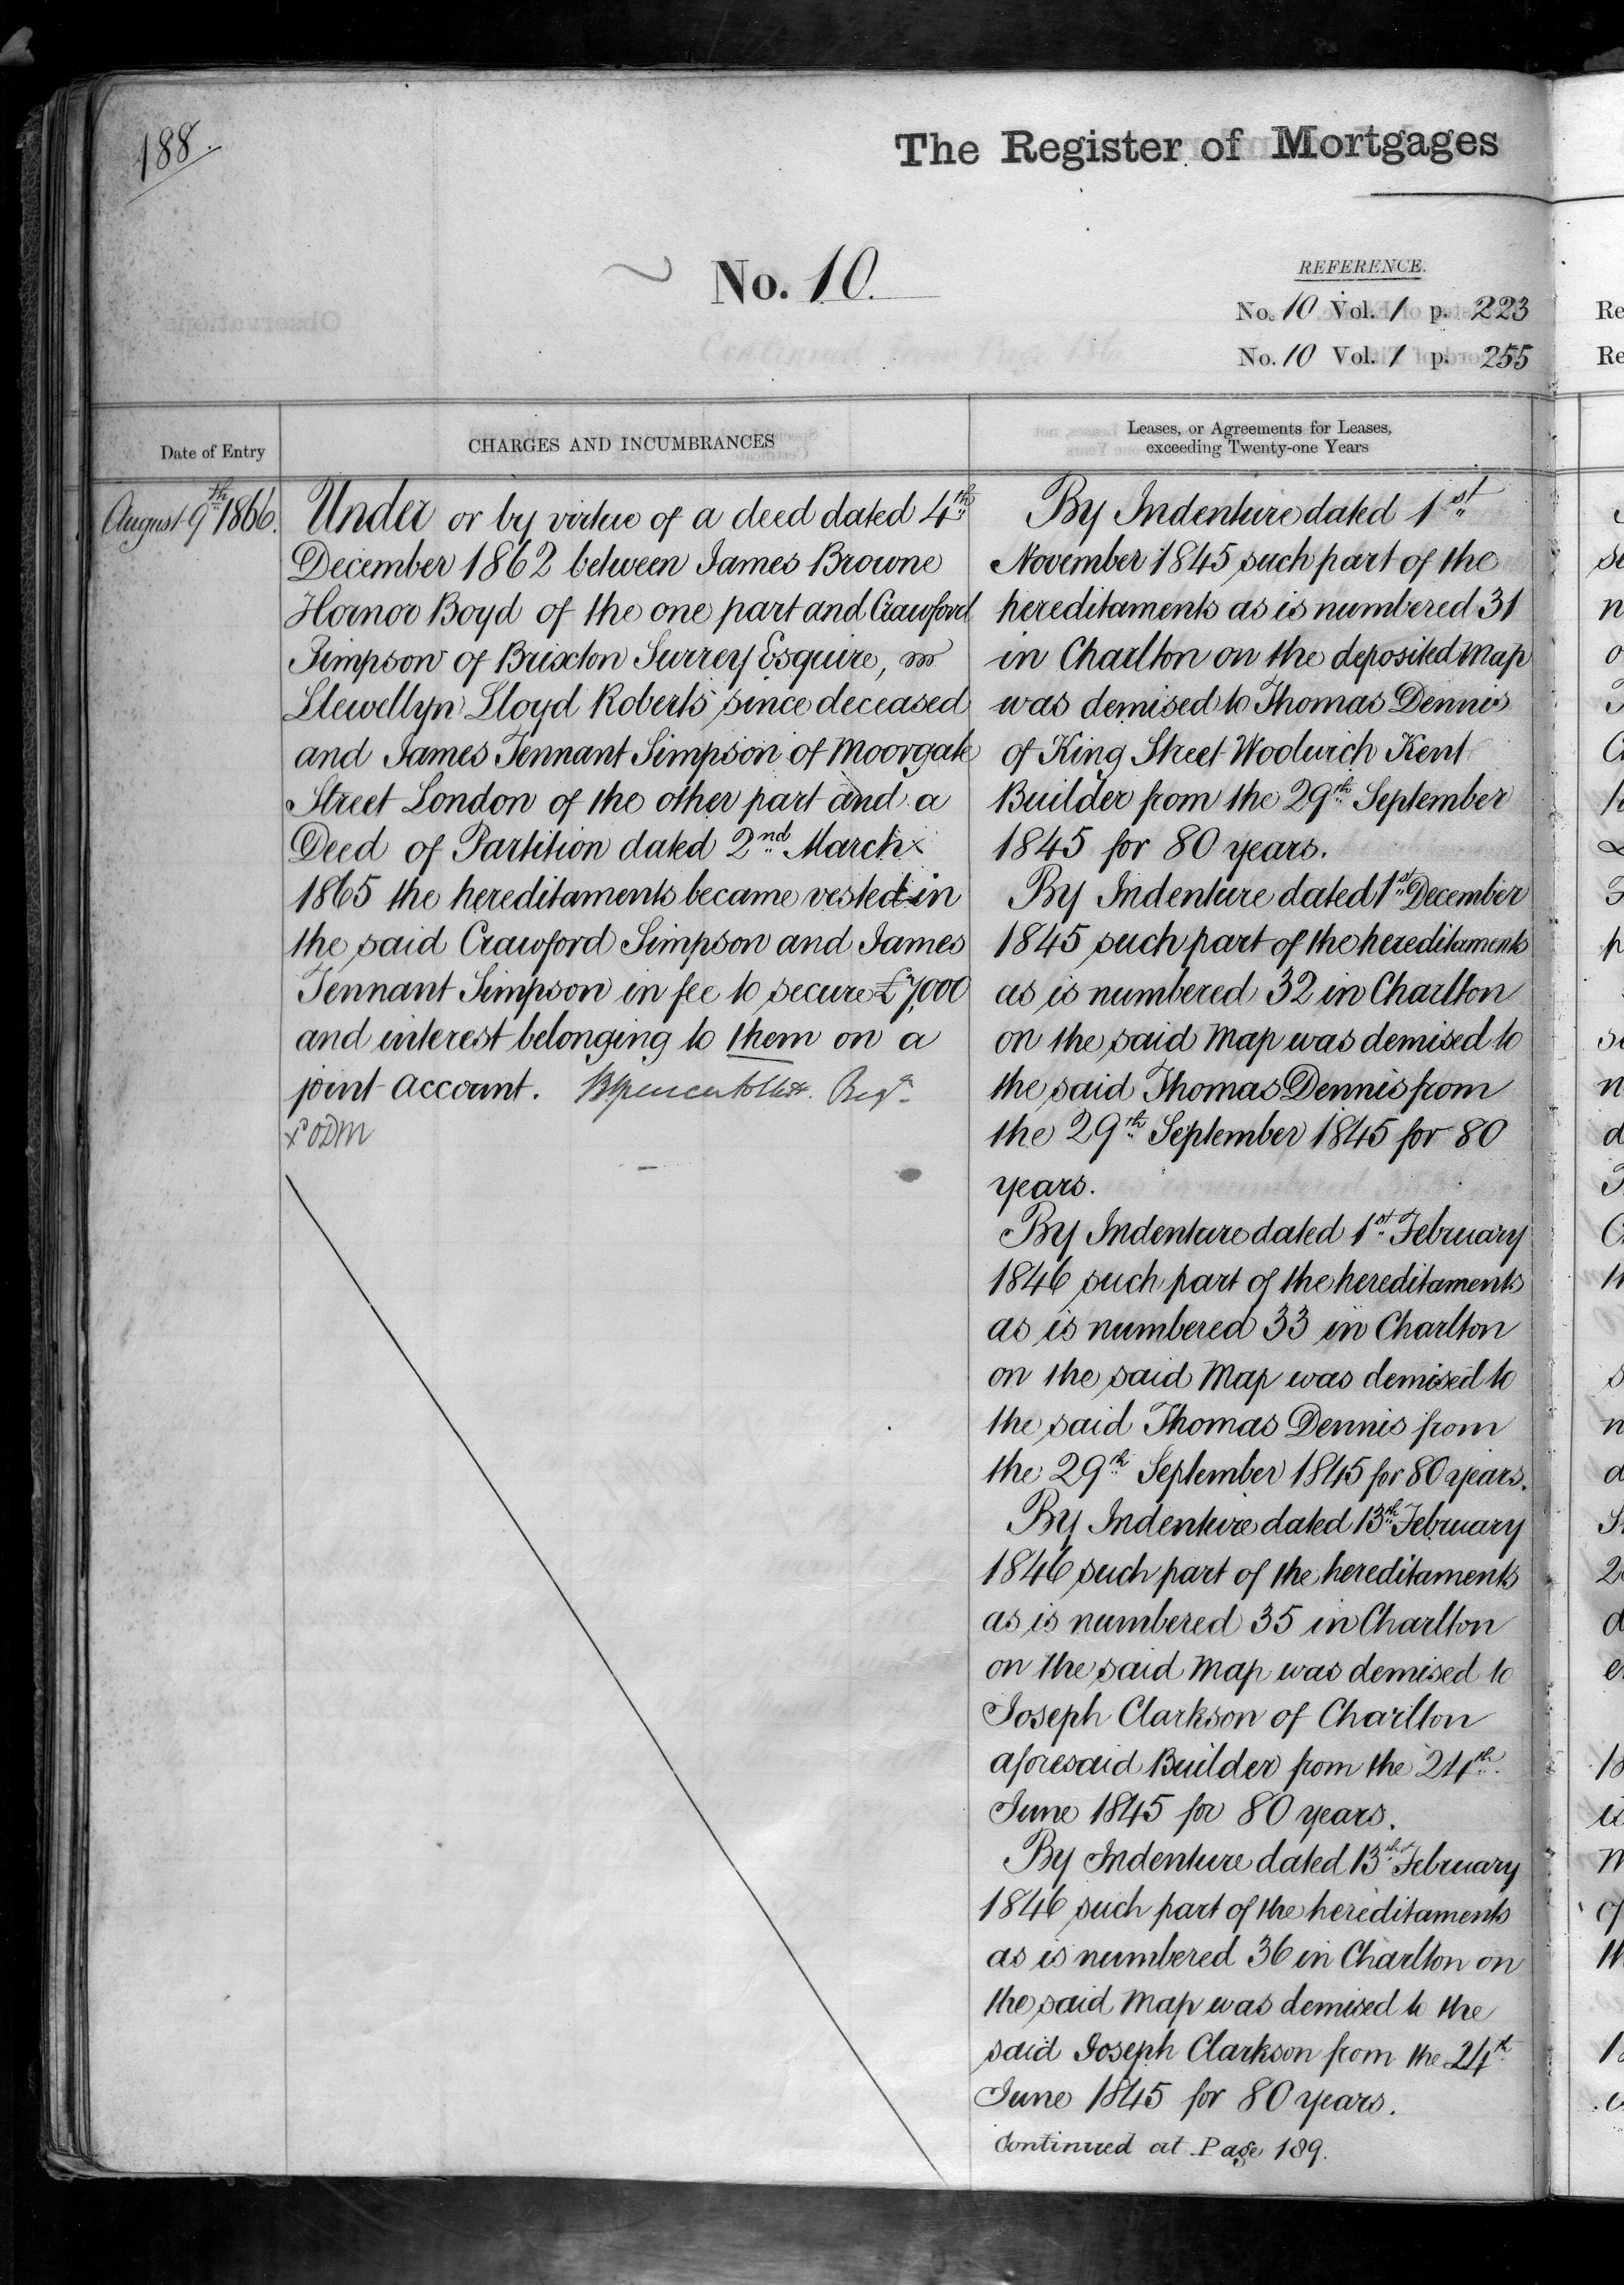 188.
The Register of Mortgages
No. 10.
REFERENCE.
No. 10 Vol. 1 p. 223
No. 10 Vol. 1 p. 255
Date of Entry
CHARGES AND INCUMBRANCES
Leases, or Agreements for Leases,
exceeding Twenty-one Years
August 9th 1866.
Under or by virtue of a deed dated 4th
December 1862 between James Browne
Hornor Boyd of the one part and Crawford
Simpson of Brixton Surrey Esquire,
Llewellyn Lloyd Roberts since deceased
and James Tennant Simpson of Moorgate
Street London of the other part and a
Deed of Partition dated 2nd March x
1865 the hereditaments became vested in
the said Crawford Simpson and James
Tennant Simpson in fee to secure £7,000
and interest belonging to them on a
joint account. Regr
x ODM
By Indenture dated 1st
November 1845 such part of the
hereditaments as is numbered 31
in Charlton on the deposited Map
was demised to Thomas Dennis
of King Street Woolwich Kent
Builder from the 29th September
1845 for 80 years.
By Indenture dated 1st December
1845 such part of the hereditaments
as is numbered 32 in Charlton
on the said Map was demised to
the said Thomas Dennis from
the 29th September 1845 for 80
years.
By Indenture dated 1st February
1846 such part of the hereditaments
as is numbered 33 in Charlton
on the said Map was demised to
the said Thomas Dennis from
the 29th September 1845 for 80 years.
By Indenture dated 13th February
1846 such part of the hereditaments
as is numbered 35 in Charlton
on the said Map was demised to
Joseph Clarkson of Charlton
aforesaid Builder from the 24th
June 1845 for 80 years.
By Indenture dated 13th February
1846 such part of the hereditaments
as is numbered 36 in Charlton on
the said Map was demised to the
said Joseph Clarkson from the 24th
June 1845 for 80 years.
Continued at Page 189.